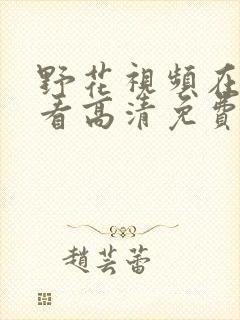 野花視頻在
看高清免費
趙芸蕾